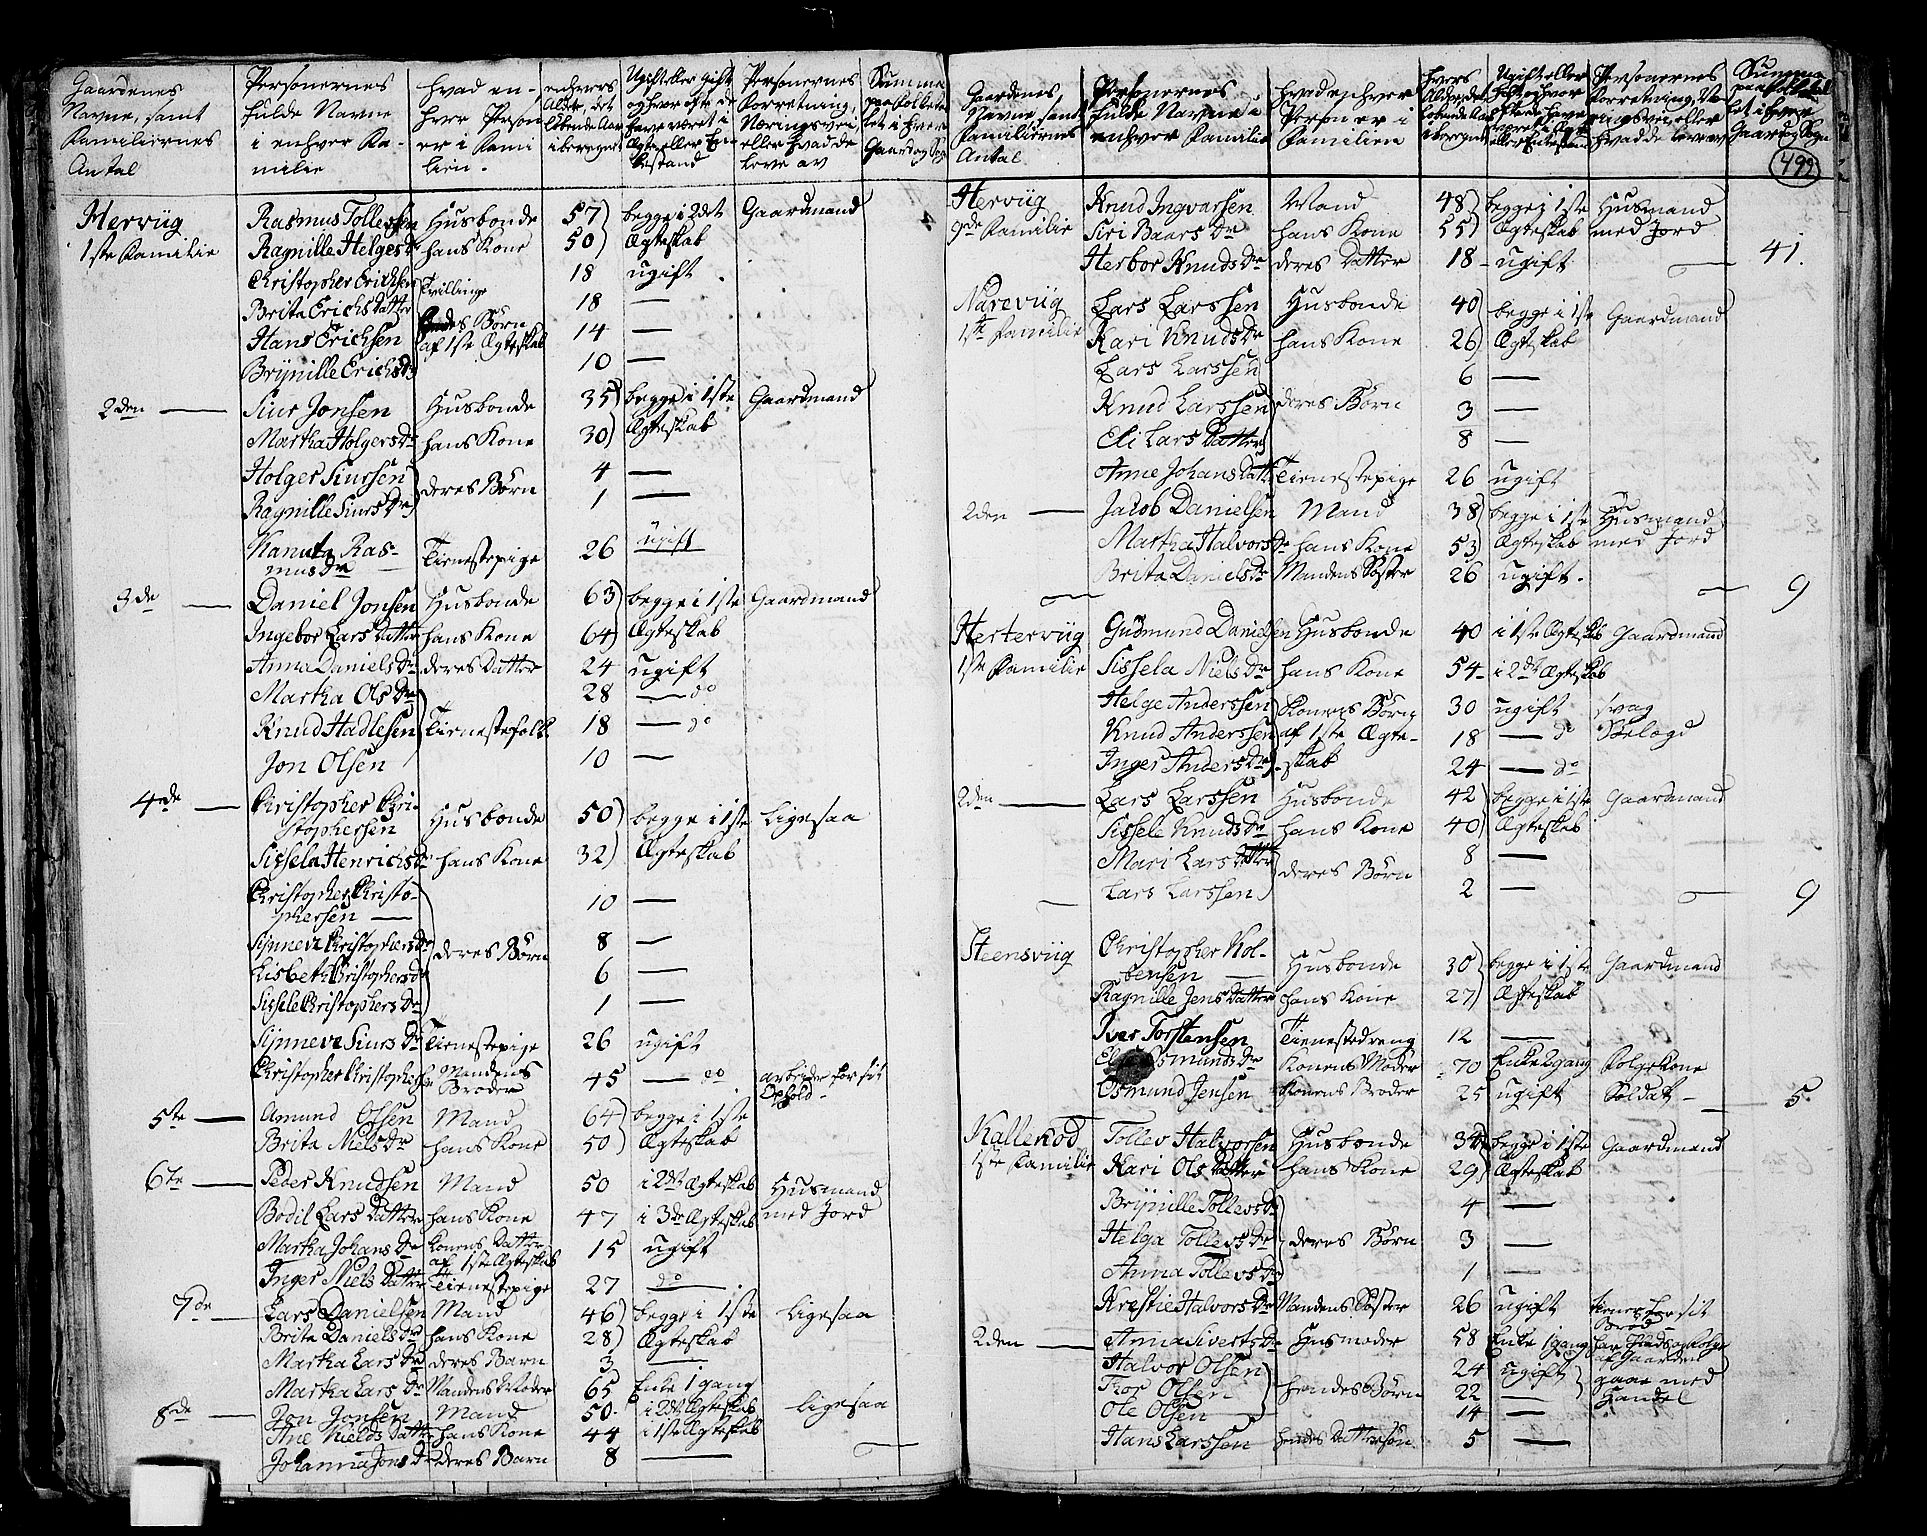 Gaardenes Navne, samt Familiernes Antal | Personernes fulde Navne i enhver Familie | hvad enhver Person er i Familien. | enhvers Alder, det løbende Aar iberegnet | Ugift eller gift og hvor ofte de have været i Ægte eller Enkestand | Personernes Forretning, Næringsvei, eller hvad de leve av | Summa paa folketallet i hver Gaard og Sogn
Herviig Rasmus Tollefsen Husbonde 57) begge i 2det Gaardmand
1ste Familie Ragnille Helgesdr hans Kone 50) Ægteskab
Christopher Erichsen Tvillinge 18 ugift
Brita Erichs Datter 18 —
Hans Erichsen Børn 14 —
af 1ste Ægteskab
Brynille Erichsdr 10 —
2den — Siur Jonsen Husbonde 35) begge i 1ste Gaardmand
Martha Holgersdr hans Kone 30) Ægteskab
Holger Siursen 4 —
deres Børn
Ragnille Siursdr 1 —
Ras-
musdr Tienestepige 26 ugift
3de — Daniel Jonsen Husbonde 63) begge i 1ste Gaardmand
Ingebor Lars Datter hans Kone 64) Ægteskab
Anna Danielsdr deres Datter 24 ugift
Martha Olsdr 28 — do
Knud Hadlesen Tienestefolk 18 — do
Jon Olsen 10 —
4de — Christopher Chri-
stophersen Husbonde 50) begge i 1ste Ligesaa
Sissela Henrichsdr hans Kone 32) Ægteskab
Christopher Christo-
phersen — 10 —
Synneve Christophersdr deres Børn 8 —
Lisbeth Christophersdr 6 —
Sissele Christophersdr 1 —
Synneve Siursdr Tienestepige 26 ugift
Christopher Christophersen Mandens Broder 45 — do arbeider for sit Ophold
5te — Amund Olsen Mand 64) begge i 1ste
Brita Nielsdr hans Kone 50) Ægteskab
6te — Peder Knudsen Mand 50 i 2det Ægteskab Husmand
Bodil Lars Datter hans Kone 47 i 3die Ægteskab med Jord
Martha Johansdr Konens Datter af 1ste Ægteskab 15 ugift
Inger Niels Datter Tienestepige 27 do —
7de — Lars Danielsen Mand 46) begge i 1ste Ligesaa
Brita Danielsdr hans Kone 28) Ægteskab
Martha Larsdr deres Barn 3 —
Martha Larsdr Mandens Moder 65 Enke 1 gang
8de — Jon Jonsen Mand 50 i 2det Ægteskab Ligesaa
Ane Nields Datter hans Kone 44 i 1ste Ægteskab
Johanna Jonsdr deres Barn 8 —
Gaardenes Navne, samt Familiernes Antal | Personernes fulde Navne i enhver Familie | hvad enhver Person er i Familien | hvers Alder, det løbende Aar iberegnet | Ugift eller gift og hvor ofte de have været i Ægte eller Enkestand | Personernes Forretning, Næringsvei eller hvad de lever av | Summa paa folketallet i hver Gaard og Sogn
492
Herviig Knud Ingvarsen Mand 48) begge i 1ste Husmand
9de Familie Siri Baarsdr hans Kone 55) Ægteskab med Jord
Herbor Knudsdr deres Datter 18 ugift — 41.
Nareviig Lars Larssen Husbonde 40) begge i 1ste Gaardmand
1ste Familie Kari Knudsdr hans Kone 26) Ægteskab
Lars Larssen 6 —
Knud Larssen deres Børn 3 —
Eli Lars Datter 8 —
Anne Johans Datt. Tienestepige 26 ugift
2den — Jacob Danielsen Mand 38) begge i 1ste Husmand
Martha Halvorsdr hans Kone 53) Ægteskab med Jord
Brita Danielsdr Mandens Søster 26 ugift.
— 9
Herterviig Gudmund Danielsen Husbonde 40 i 1ste Ægteskab Gaardmand
1ste Familie Sissela Nielsdr hans Kone 54 i 2det Ægteskab
Helge Anderssen Konens Børn 30 ugift svag
Knud Anderssen af 1ste Ægte- 18 — do
Inger Andersdr skab 24 — do
2den — Lars Larssen Husbonde 42) begge i 1ste Gaardmand
Sissele Knudsdr hans Kone 40) Ægteskab
Mari Lars Datter 8 —
deres Børn
Lars Larssen 2 — 9
Steensviig Christopher Kol-
bensen — Husbonde 30) begge i 1ste Gaardmand
Ragnille Jens Datter hans Kone 27) Ægteskab
Iver Torstensen Tienestedreng 12 —
Osmundsdr Konens Moder 70 Enke 2 gang Folgekone
Osmund Jensen Konens Broder 25 ugift Soldat — 5
Kallekod Tollev Halvorsen Husbonde 34) begge i 1ste Gaardmand
1ste Familie Kari Ols Datter hans Kone 29) Ægteskab
Brynille Tollevsdr 4 —
Helga Tollevsdr deres Børn 3 —
Anna Tollevsdr 1 —
Krestie Halvorsdr Mandens Søster 26 ugift tiener for sit Brød
2den — Anna Sivertsdr Husmoder 58 Enke 1 gang af Gaarden
Halvor Olsen 24 ugift gaar med
Thor Olsen hendes Børn 22 — Handel
Ole Olsen 14 —
Hans Larssen hendes Dattersøn 5 —